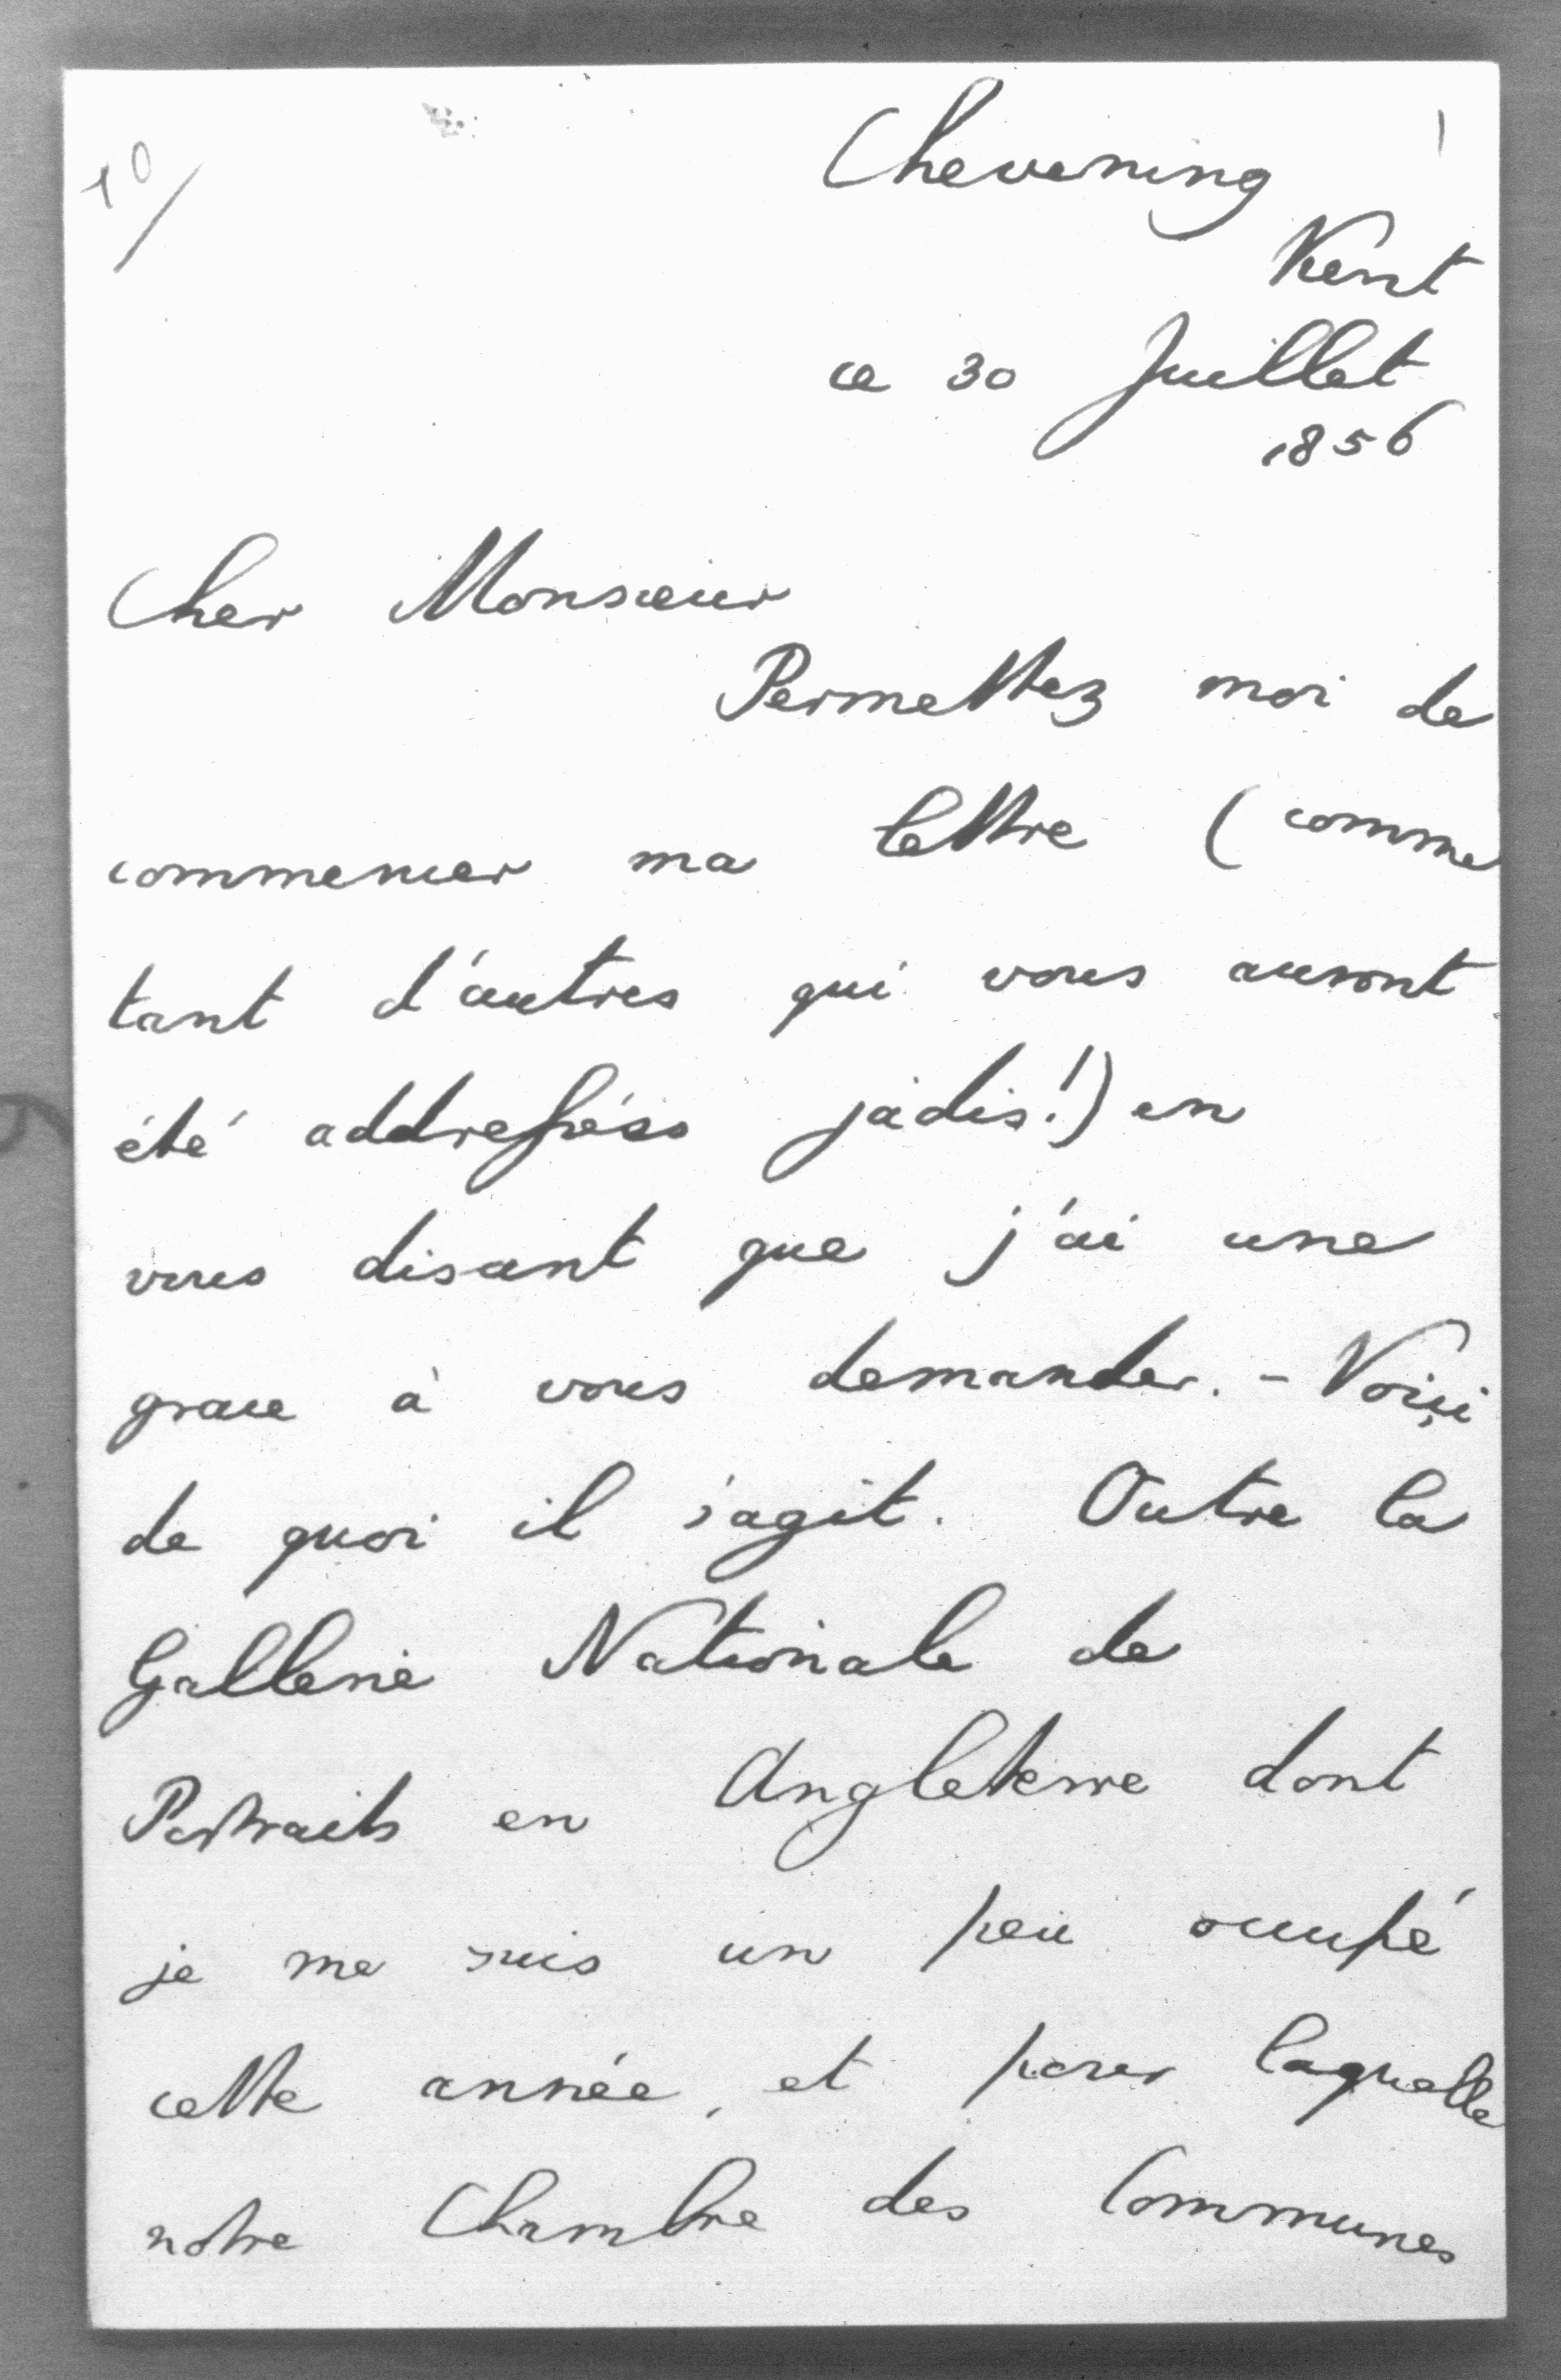 10/
Chevening
Kent
ce 30 Juillet
1856
Cher Monsieur
Permettez moi de
commencer ma lettre (comme
tant d'autres qui vous auront
été addressées jadis!) en
vous disant que j'ai une
grace à vous demander. - Voiçi
de quoi il s'agit. Outre la
Gallerie Nationale de
Portraits en Angleterre dont
je me suis un peu occupé
cette année, et pour laquelle
notre Chambre des Communes